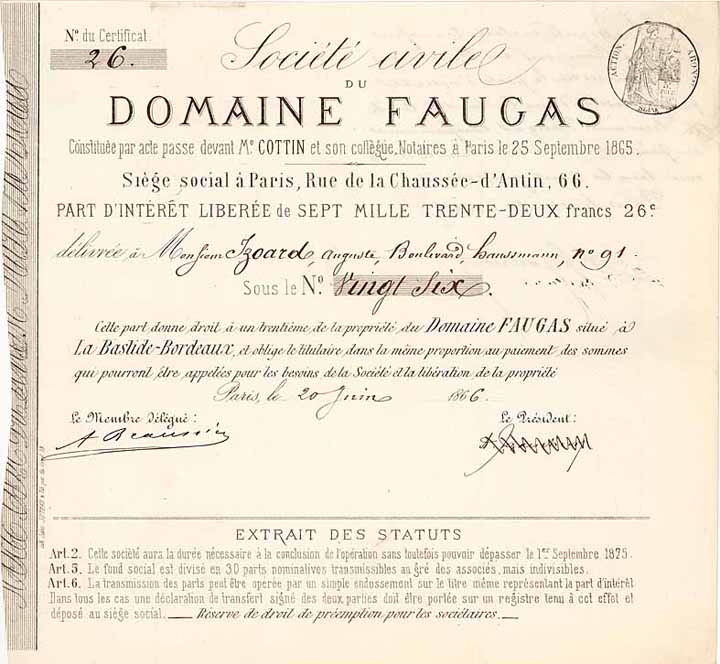 N° du Certificat
26.
Société civile
DU
DOMAINE FAUGAS
Constituée par acte passe devant Me COTTIN et son collègue, Notaires à Paris le 25 Septembre 1865.
Siège social à Paris, Rue de la Chaussée-d'Antin, 66.
PART D'INTÉRÊT LIBERÉE de SEPT MILLE TRENTE-DEUX francs 26c
délivrée à Monsieur Izoard, Auguste, Boulevard haussmann, n° 91.
Sous le N° Vingt Six.
Cette part donne droit à un trentième de la propriété du Domaine FAUGAS situé à
La Bastide-Bordeaux, et oblige le titulaire dans la même proportion au paiement des sommes
qui pourront être appelées pour les besoins de la Société et la libération de la propriété
Paris, le 20 Juin 1866.
Le Membre délégué:
Le Président:
ACTION.
EXTRAIT DES STATUTS
Art. 2. Cette société aura la durée nécessaire à la conclusion de l'opération sans toutefois pouvoir dépasser le 1er Septembre 1875.
Art. 5. Le fond social est divisé en 30 parts nominatives transmissibles au gré des associés, mais indivisibles.
Art. 6. La transmission des parts peut être operée par un simple endossement sur le titre même représentant la part d'intérêt
Dans tous les cas une déclaration de transfert signé des deux parties doit être portée sur un registre tenu à cet effet et
déposé au siège social. — Réserve de droit de préemption pour les sociétaires. —